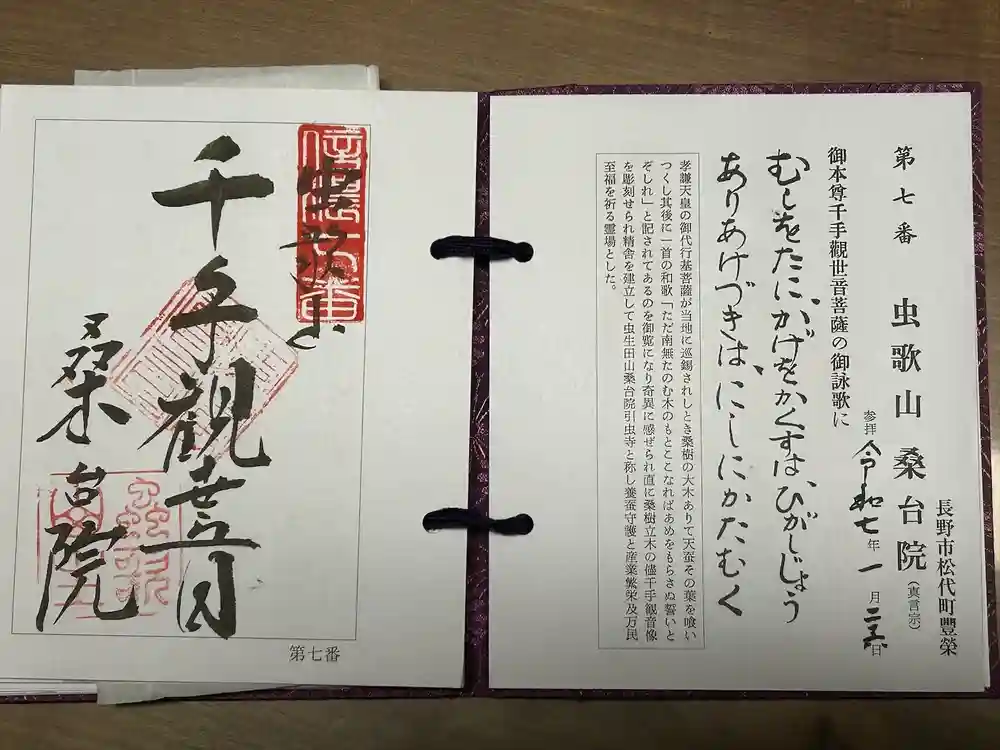 長野市松代町豐榮
第七番 虫歌山 桑台院（真言宗）
参拝 令和七年一月二十五日
御本尊千手觀世音菩薩の御詠歌に
むしをたにかげをかくすはひがしじょう
ありあけづきはにしにかたむく
孝謙天皇の御代行基菩薩が当地に巡錫されしとき桑樹の大木ありて天蚕その葉を喰い
つくし其後に一首の和歌「ただ南無たのむ木のもとここなればあめをもらさぬ誓いと
ぞしれ」と記されてあるのを御覧になり奇異に感ぜられ直に桑樹立木の儘千手観音像
を彫刻せられ精舎を建立して虫生田山桑台院引虫寺と称し養蚕守護と産業繁栄及万民
至福を祈る霊場とした。
信濃七番
虫歌山
千手觀世音
桑台院
第七番